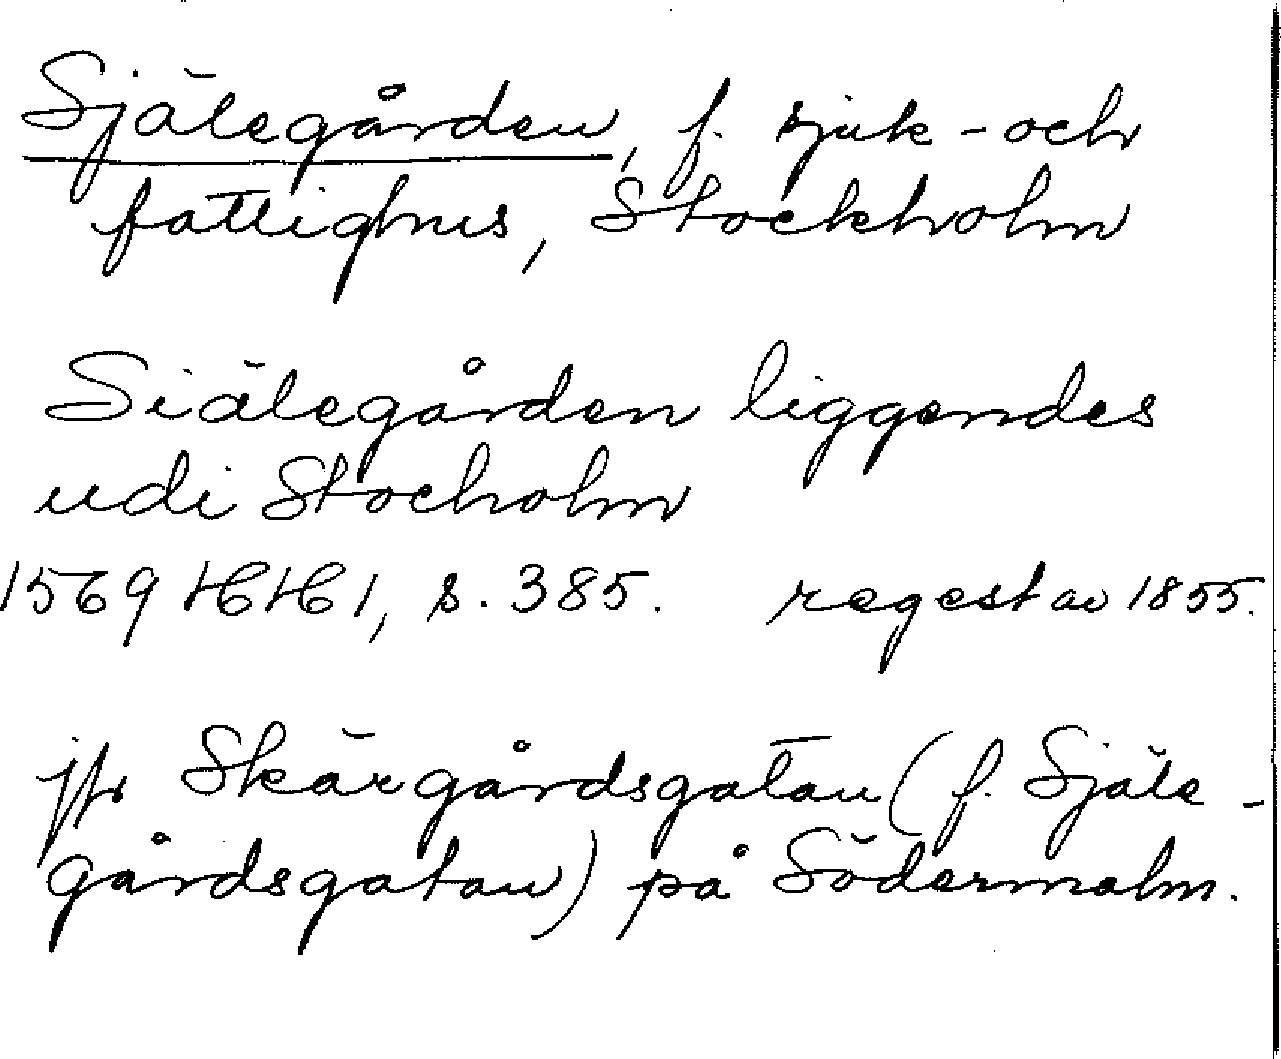 Själegården, f. sjuk- och
fattighus, Stockholm
Siälegården liggendes
udi Stocholm
1569 HH 1, s. 385. regest av 1855.
jfr Skärgårdsgatan (f. Själe-
gårdsgatan) på Södermalm.